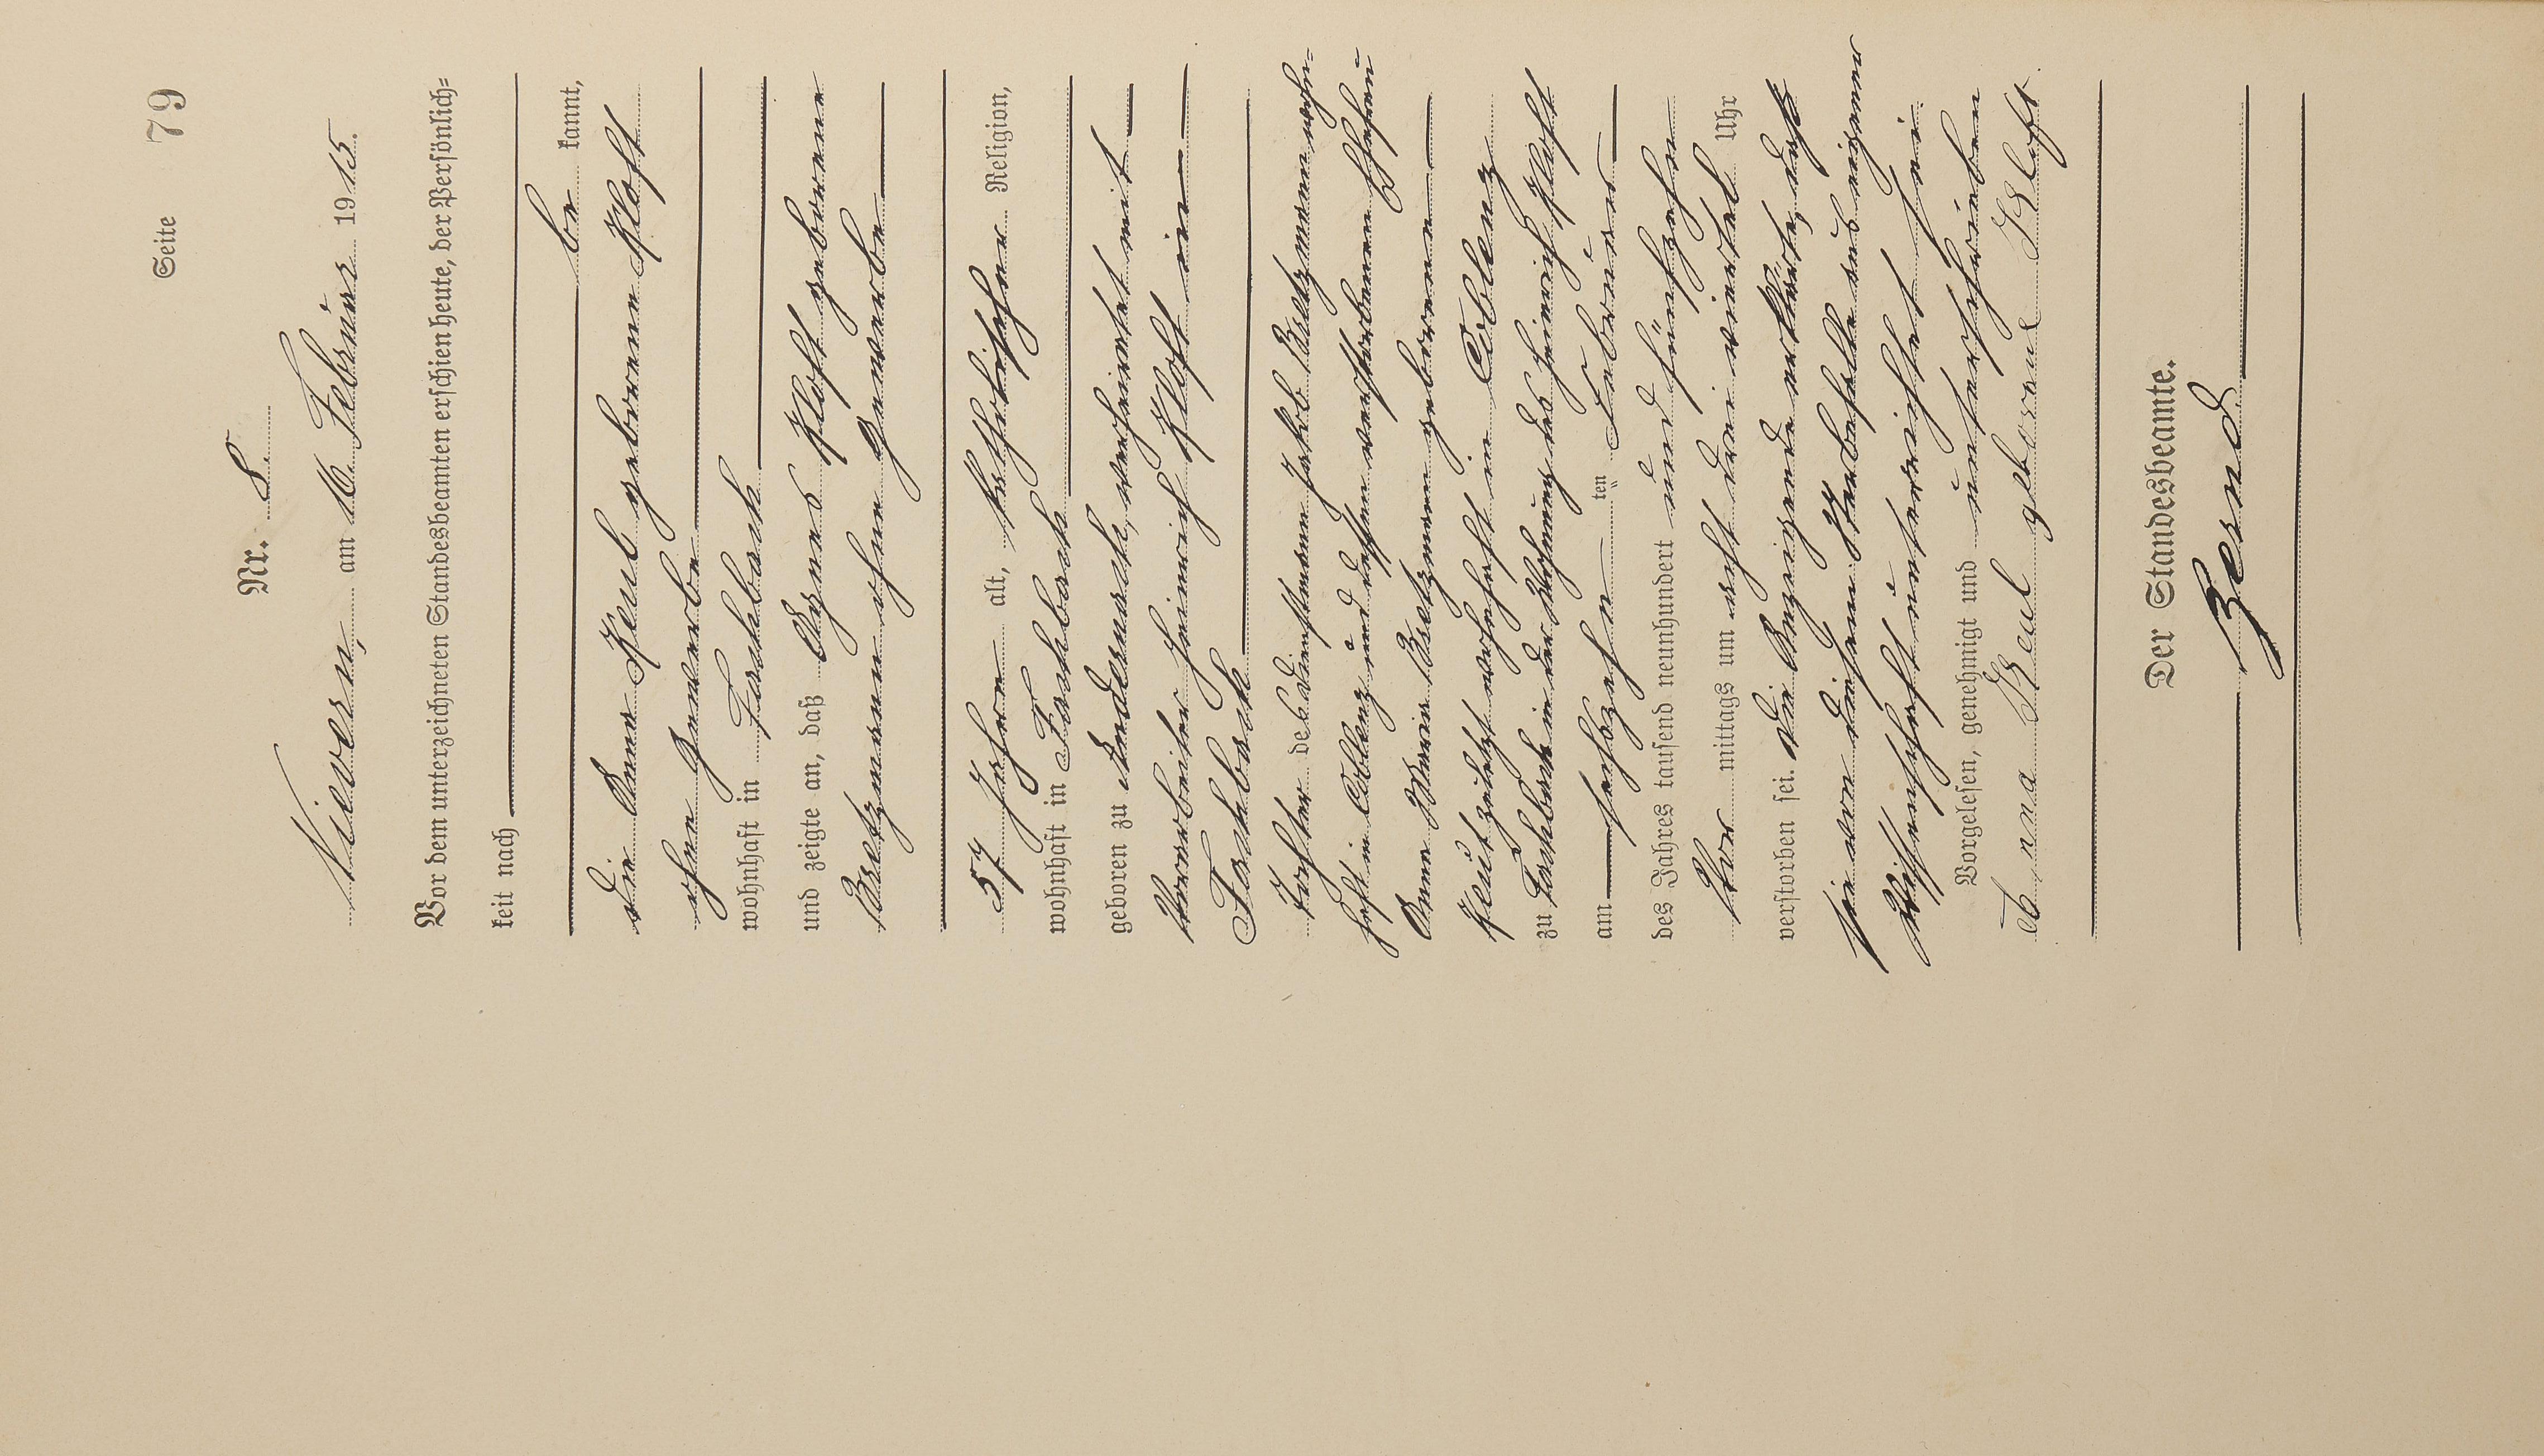 Seite 79
Nr. 8.
Nievern, am 16. Februar 1915.
Vor dem unterzeichneten Standesbeamten erschien heute, der Persönlich=
keit nach
be kannt,
die Anna Keul geborene Kloft
ohne Gewerbe
wohnhaft in Fachbach
und zeigte an, daß Agnes Kloft geborene
Bretzmann ohne Gewerbe
57 Jahre alt, katholischer Religion,
wohnhaft in Fachbach
geboren zu Andernach, verheiratet mit
Heinrich Kloft in
Fachbach
Tochter des Dienstmann Jakob Bretzmann wohn=
haft in Coblenz und dessen verstorbenen Ehefrau
Anna Maria Bretzmann geborene
zuletzt wohnhaft in Coblenz
zu Fachbach in der Wohnung des Heinrich Kloft
am sechszehn ten Februar
des Jahres tausend neunhundert und fünfzehn
Vor mittags um acht drei viertel Uhr
verstorben sei. Die Anzeigende erklärte, daß
sie von diesem Sterbefalle aus eigener
Wissenschaft unterrichtet sei.
Vorgelesen, genehmigt und unterschrieben
Anna Keul geborne Kloft.
Der Standesbeamte.